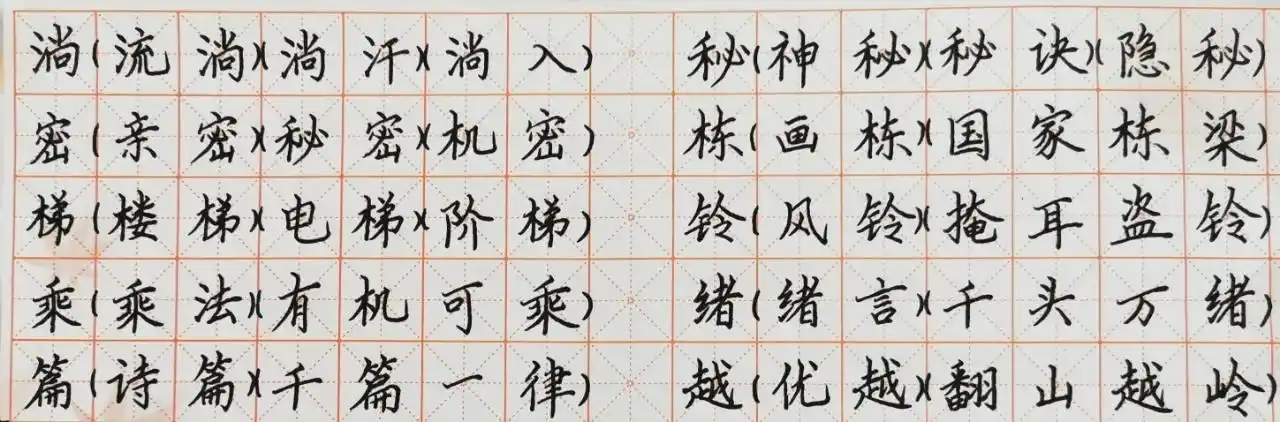 淌(流淌)(淌汗)(淌入) 秘(神秘)(秘诀)(隐秘)
密(亲密)(秘密)(机密) 栋(画栋)(国家栋梁)
梯(楼梯)(电梯)(阶梯) 铃(风铃)(掩耳盗铃)
乘(乘法)(有机可乘) 绪(绪言)(千头万绪)
篇(诗篇)(千篇一律) 越(优越)(翻山越岭)